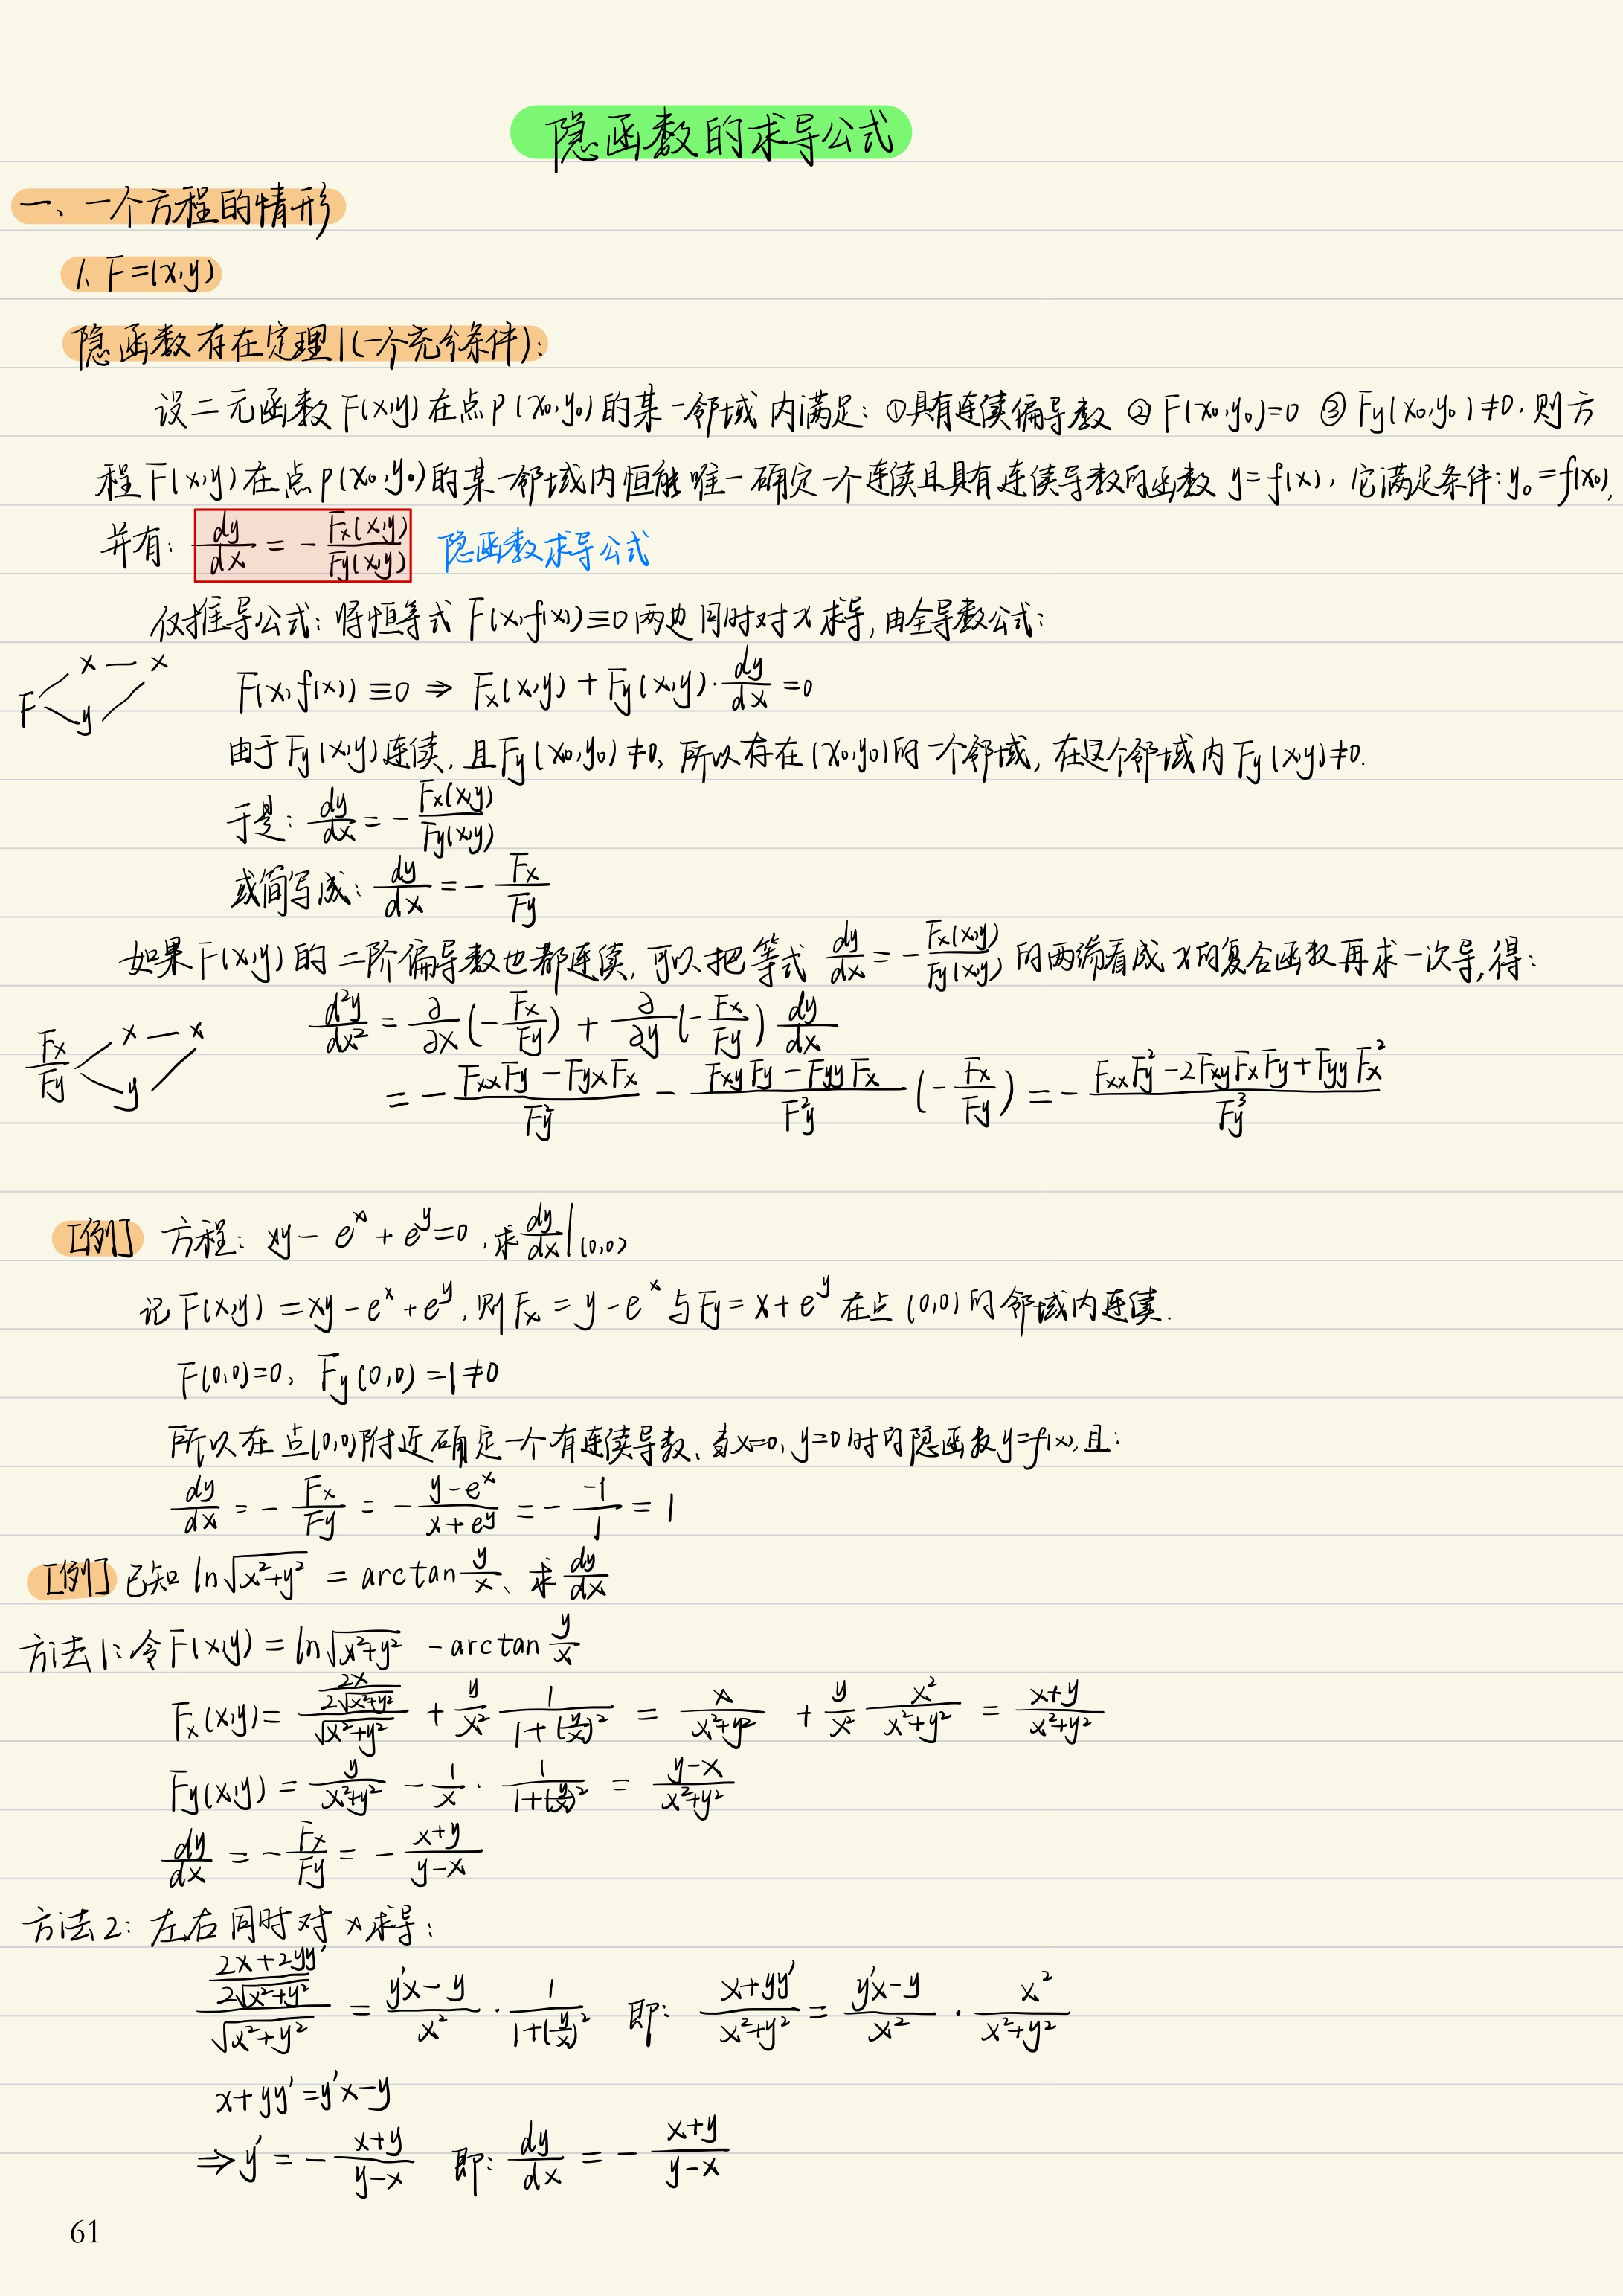 隐函数的求导公式
一、一个方程的情形
1、F=(x,y)
隐函数存在定理1(一个充分条件):
设二元函数 F(x,y) 在点P(x₀,y₀)的某一邻域内满足: ①具有连续偏导数 ② F(x₀,y₀)=0 ③ Fy(x₀,y₀)≠0, 则方
程 F(x,y) 在点 P(x₀,y₀)的某一邻域内恒能唯一确定一个连续且具有连续导数的函数 y=f(x), 它满足条件: y₀=f(x₀),
并有: dy/dx = - Fx(x,y)/Fy(x,y) 隐函数求导公式
仅推导公式: 将恒等式 F(x,f(x))≡0 两边同时对x求导, 由全导数公式:
F x — x y
F(x,f(x))≡0 ⇒ Fx(x,y) + Fy(x,y)·dy/dx =0
由于 Fy(x,y)连续, 且Fy(x₀,y₀)≠0, 所以存在(x₀,y₀)的一个邻域, 在这个邻域内 Fy(x,y)≠0.
于是: dy/dx = - Fx(x,y)/Fy(x,y)
或简写成: dy/dx = - Fx/Fy
如果 F(x,y) 的二阶偏导数也都连续, 可以把等式 dy/dx = - Fx(x,y)/Fy(x,y) 的两端看成x的复合函数再求一次导, 得:
Fx/Fy x — x y
d²y/dx² = ∂/∂x(-Fx/Fy) + ∂/∂y(-Fx/Fy) dy/dx
= - (FxxFy - FyxFx)/Fy² - (FxyFy - FyyFx)/Fy² (-Fx/Fy) = - (FxxFy² - 2FxyFxFy + FyyFx²)/Fy³
[例] 方程: xy - eˣ + e^y = 0, 求 dy/dx|(0,0)
记 F(x,y) = xy - eˣ + e^y, 则 Fx = y - eˣ 与 Fy = x + e^y 在点 (0,0) 的邻域内连续.
F(0,0)=0, Fy(0,0)=1≠0
所以在点(0,0)附近确定一个有连续导数、当x=0, y=0时的隐函数y=f(x), 且:
dy/dx = - Fx/Fy = - (y-eˣ)/(x+e^y) = - (-1)/1 = 1
[例] 已知 ln√(x²+y²) = arctan y/x、求 dy/dx
方法1: 令F(x,y) = ln√(x²+y²) - arctan y/x
Fx(x,y) = (2x/(2√(x²+y²)))/√(x²+y²) + y/x² 1/(1+(y/x)²) = x/(x²+y²) + y/x² x²/(x²+y²) = (x+y)/(x²+y²)
Fy(x,y) = y/(x²+y²) - 1/x · 1/(1+(y/x)²) = (y-x)/(x²+y²)
dy/dx = - Fx/Fy = - (x+y)/(y-x)
方法2: 左右同时对x求导:
((2x+2yy')/(2√(x²+y²)))/√(x²+y²) = (y'x-y)/x² · 1/(1+(y/x)²) 即: (x+yy')/(x²+y²) = (y'x-y)/x² · x²/(x²+y²)
x+yy'=y'x-y
⇒ y' = - (x+y)/(y-x) 即: dy/dx = - (x+y)/(y-x)
61